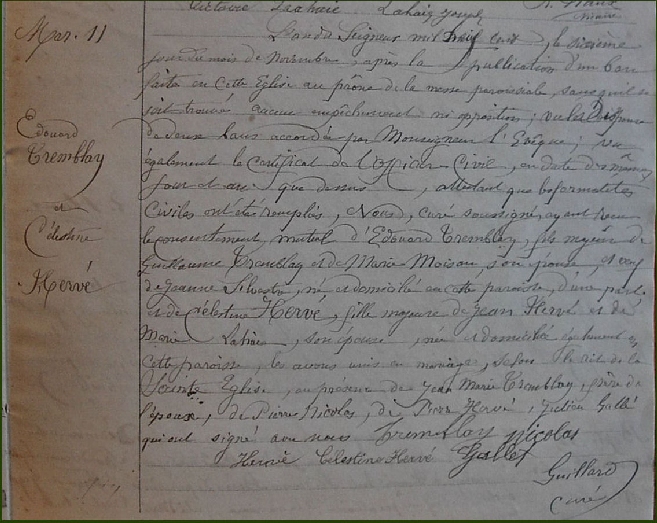 Victoire Lahaie Lahaie Joseph
maire
Mar. 11
L'an du Seigneur mil huit cent, le sixième
jour du mois de Novembre, après la publication d'un ban
faite en cette Eglise au prône de la messe paroissiale, sans qu'il se
soit trouvé aucun empêchement ni opposition; vu les Dispense
de deux bans accordé par Monseigneur l'Evêque; vu
également le Certificat de l'Officier Civil, en date des mêmes
jour et an que dessus, attestant que les formalités
Civiles ont été remplies, Nous, curé soussigné, ayant reçu
le consentement mutuel d'Edouard Tremblay, fils majeur de
Guillaume Tremblay et de Marie Moison, son épouse, et veuf
de Jeanne Silvestre, né et domicilié en cette paroisse, d'une part
et de Célestine Hervé, fille majeure de Jean Hervé et de
Marie Lahaie, son épouse, née et domiciliée également en
cette paroisse, les avons unis en mariage, selon le rit de la
Sainte Eglise, en présence de Jean Marie Tremblay, frère de
l'époux, de Pierre Nicolas, de Pierre Hervé, Julien Gallé
qui ont signé avec nous Tremblay Nicolas
Hervé Célestine Hervé Gallet
Guillard
curé
Edouard
Tremblay
et
Célestine
Hervé